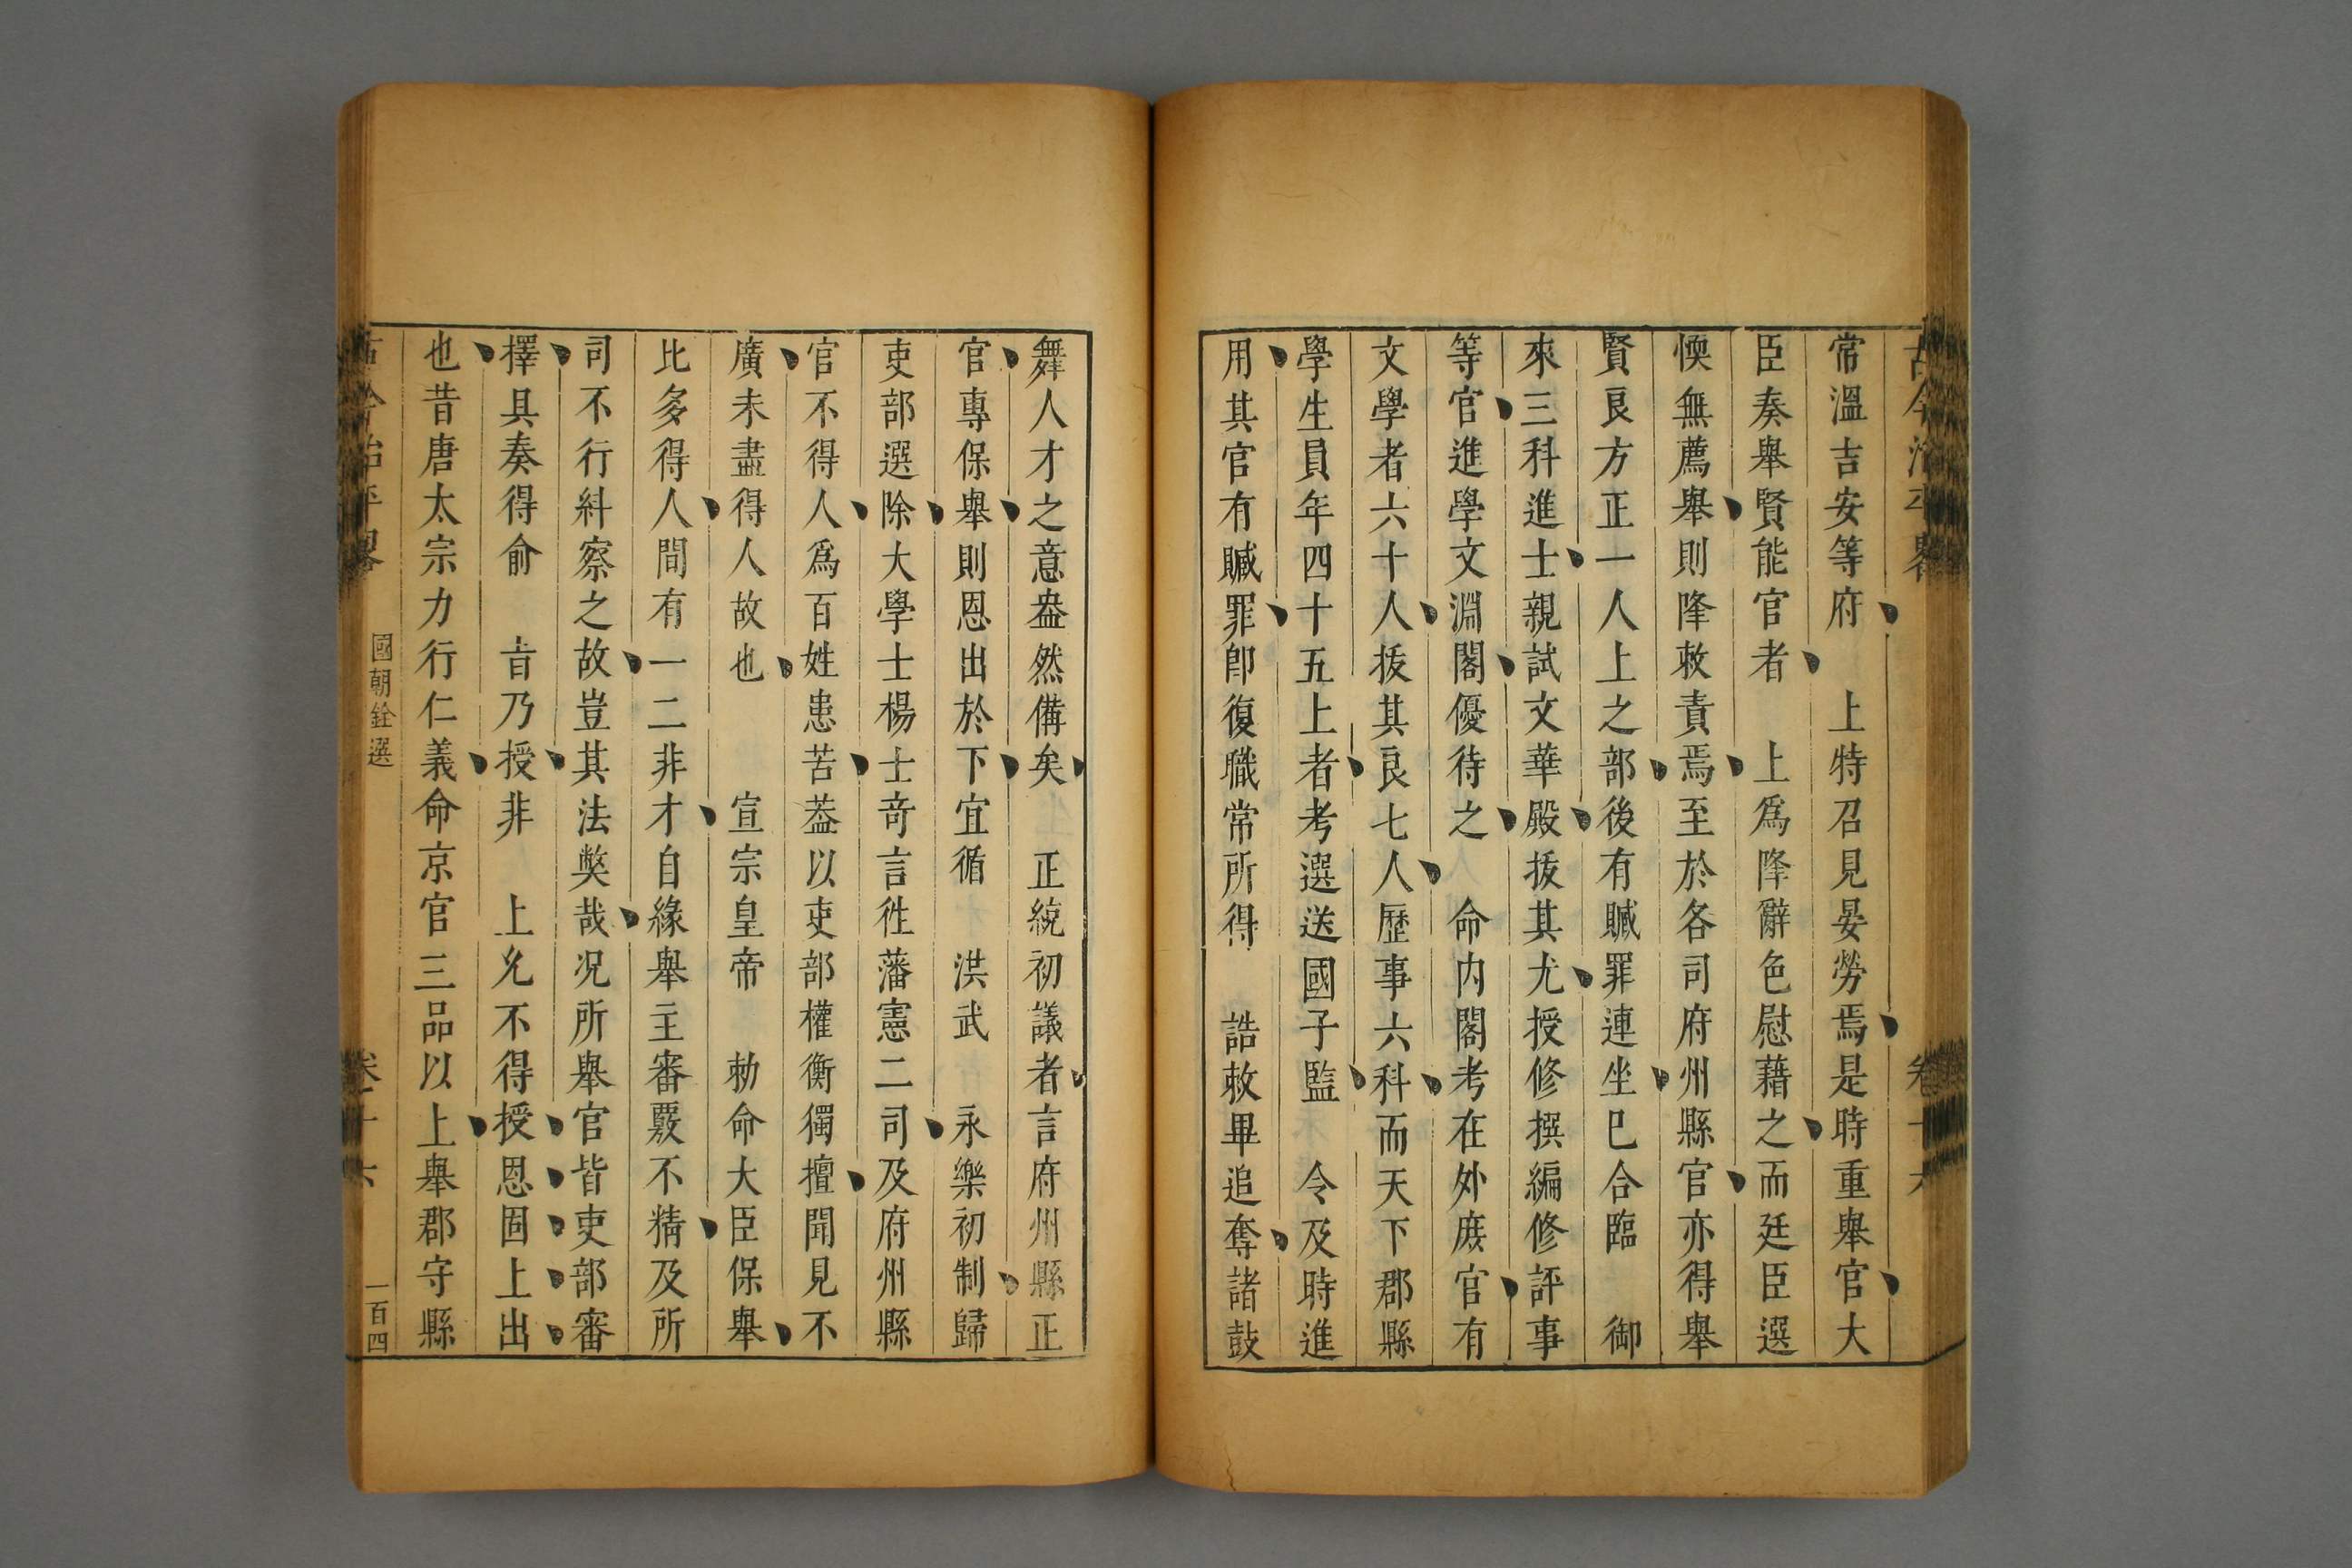 古今治平畧 卷十六
常溫吉安等府 上特召見晏勞焉是時重舉官大
臣奏舉賢能官者 上爲降辭色慰藉之而廷臣選
愞無薦舉則降敕責焉至於各司府州縣官亦得舉
賢良方正一人上之部後有贓罪連坐已合臨 御
來三科進士親試文華殿拔其尤授修撰編修評事
等官進學文淵閣優待之 命内閣考在外庶官有
文學者六十人拔其良七人歷事六科而天下郡縣
學生員年四十五上者考選送國子監 令及時進
用其官有贓罪卽復職常所得 誥敕畢追奪諸鼓
舞人才之意盎然備矣 正統初議者言府州縣正
官專保舉則恩出於下宜循 洪武 永樂初制歸
吏部選除大學士楊士竒言徃藩憲二司及府州縣
官不得人爲百姓患苦葢以吏部權衡獨擅聞見不
廣未盡得人故也 宣宗皇帝 勅命大臣保舉
比多得人間有一二非才自緣舉主審覈不精及所
司不行糾察之故豈其法獘哉況所舉官皆吏部審
擇具奏得俞 旨乃授非 上允不得授恩固上出
也昔唐太宗力行仁義命京官三品以上舉郡守縣
古今治平畧 國朝銓選 卷十六 一百四